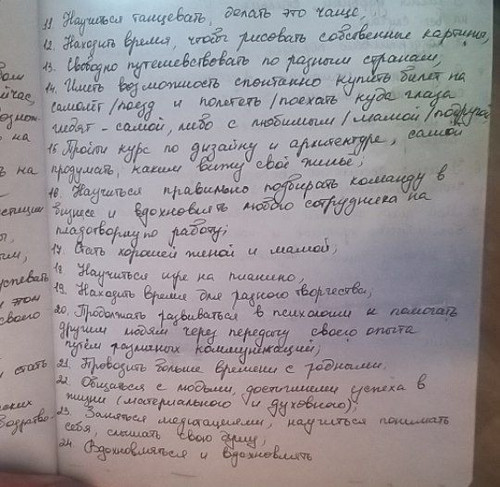 11. Научиться танцевать, делать это чаще,
12. Находить время, чтобы рисовать собственные картины,
13. Свободно путешествовать по разным странам,
14. Иметь возможность спонтанно купить билет на
самолёт/поезд и полететь/поехать куда глаза
глядят - самой, либо с любимым/мамой/подругой
15 Пройти курс по дизайну и архитектуре, самой
продумать, каким вижу своё жильё;
16. Научиться правильно подбирать команду в
бизнесе и вдохновлять любого сотрудника на
плодотворную работу;
17. Стать хорошей женой и мамой;
18. Научиться игре на пианино,
19. Находить время для разного творчества,
20. Продолжать развиваться в психологии и помогать
другим людям через передачу своего опыта
путём различных коммуникаций;
21. Проводить больше времени с родными.
22. Общаться с людьми, достигшими успеха в
жизни (материального и духовного);
23. Заняться медитациями, научиться понимать
себя, слышать свою душу,
24. Вдохновляться и вдохновлять
ейчас,
на
ть на
успевать
том
своего
стать